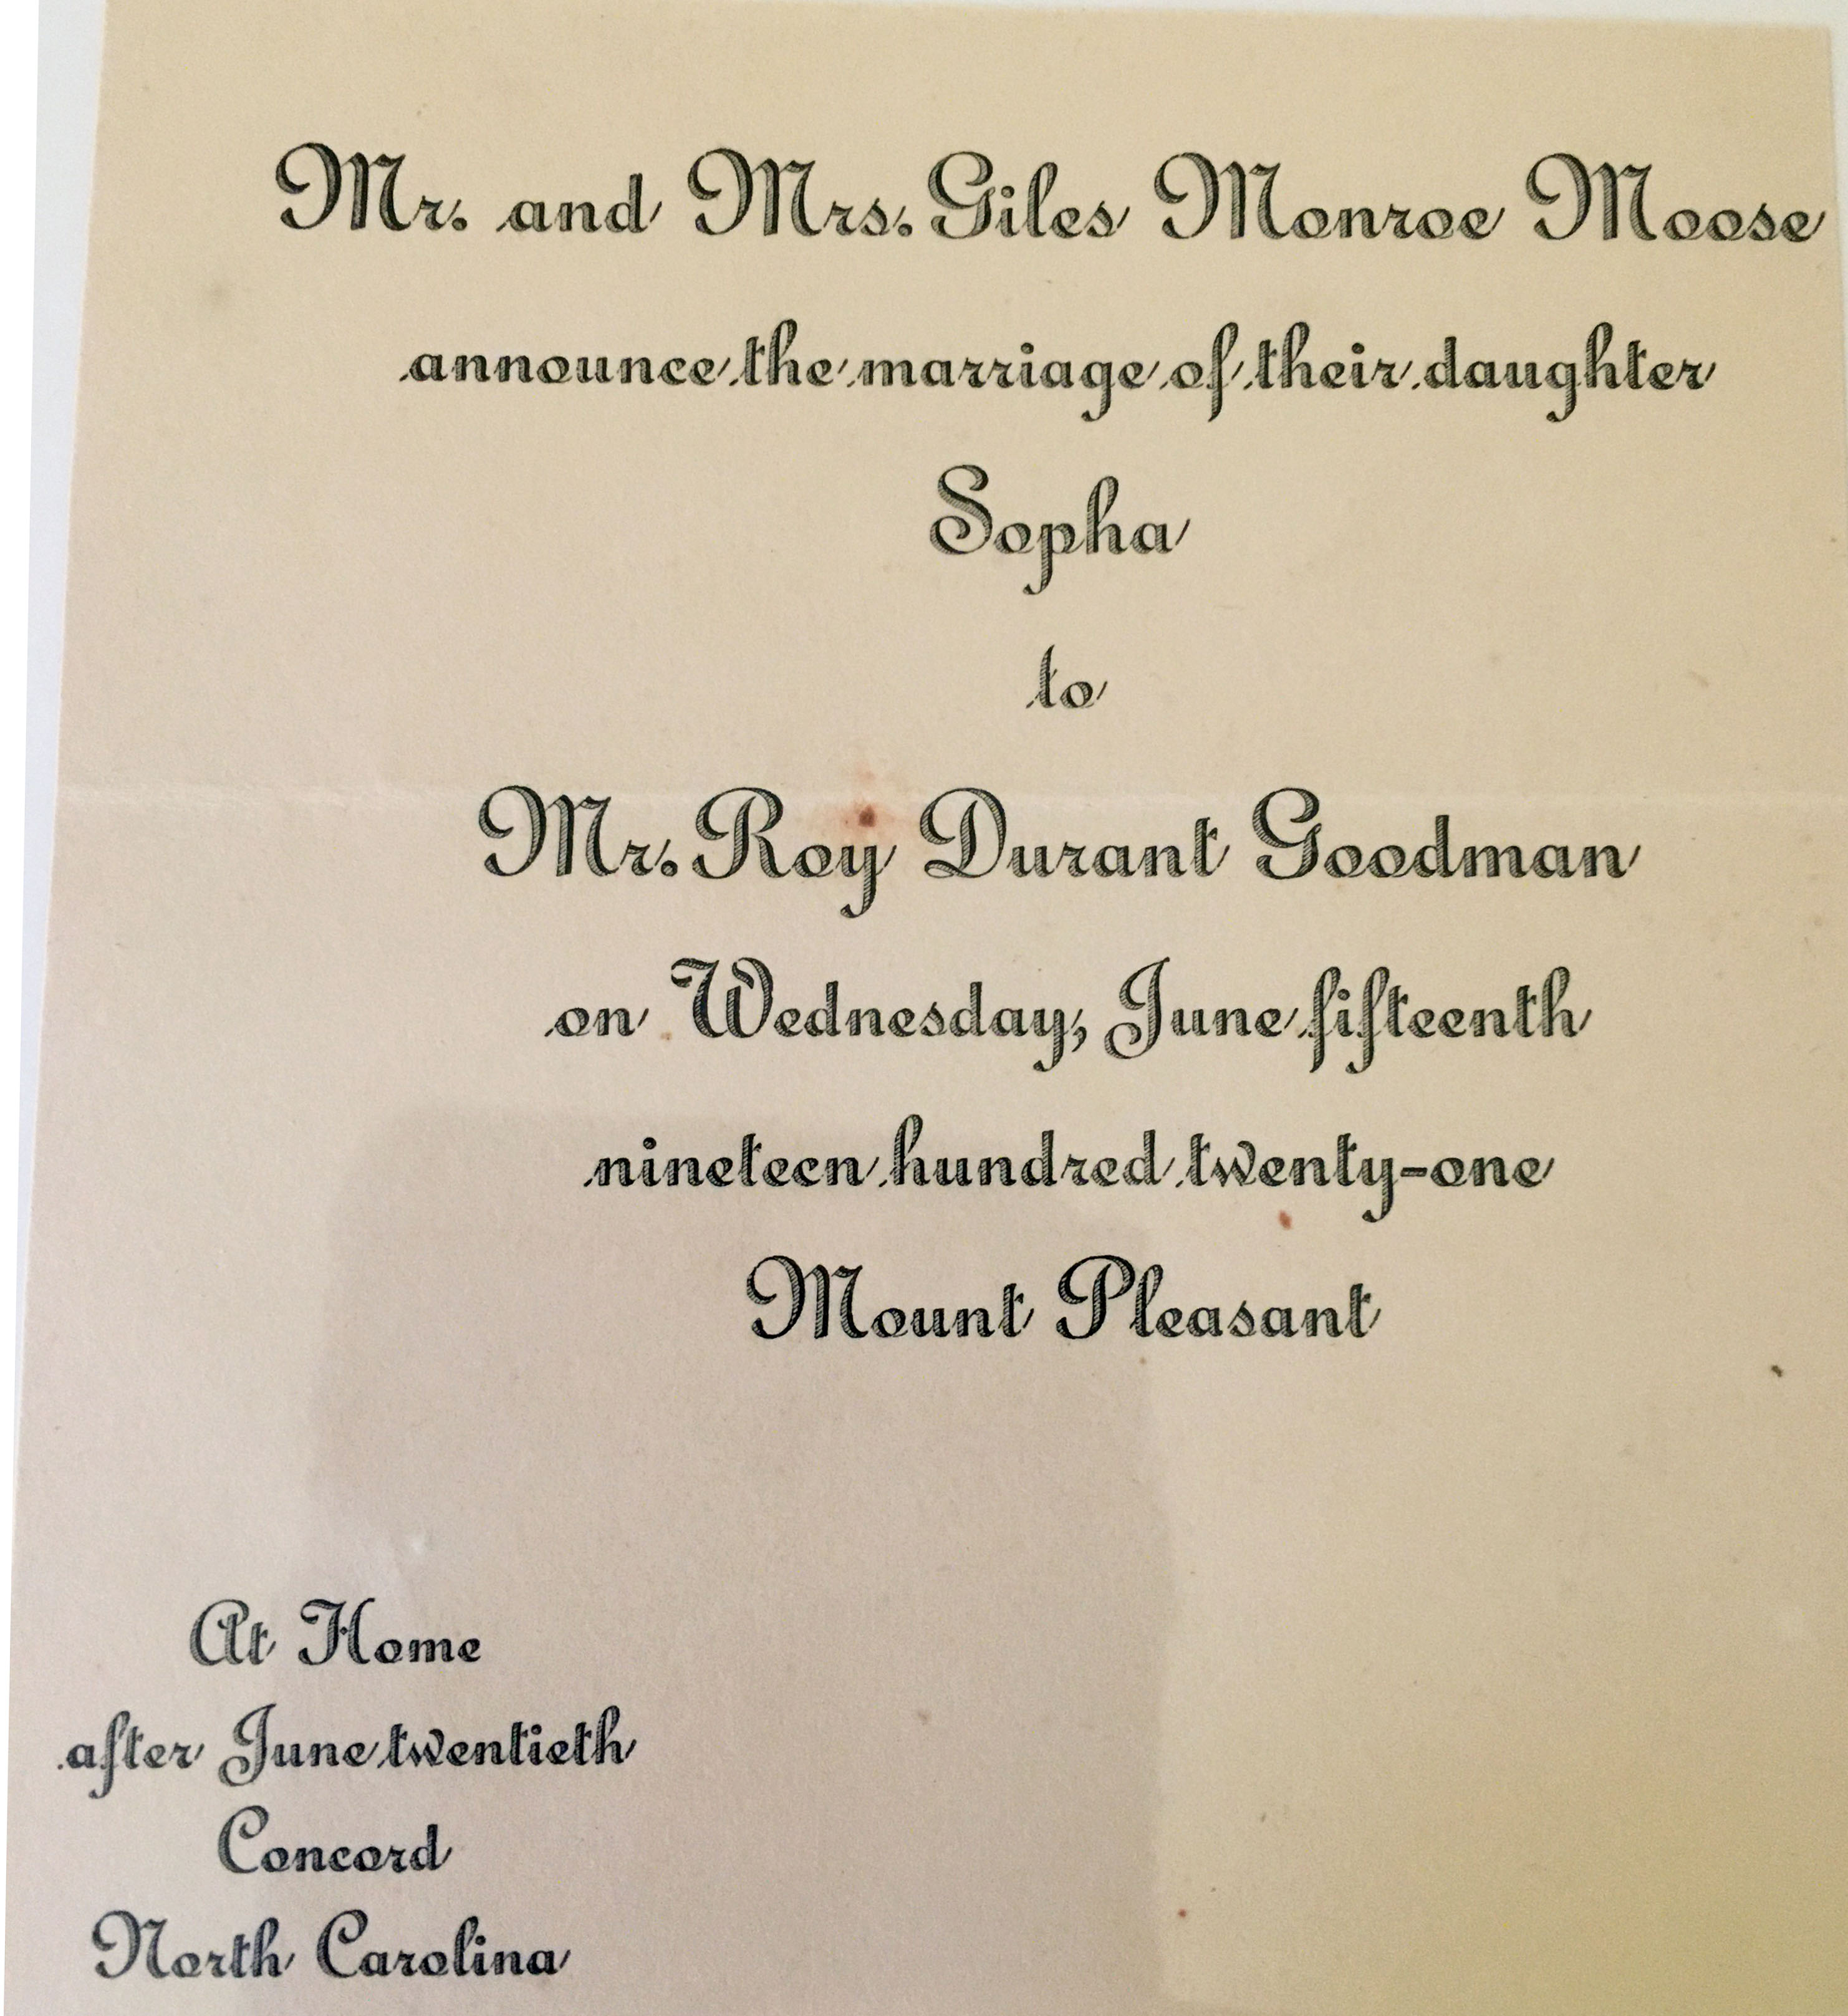 Mr. and Mrs. Giles Monroe Moose
announce the marriage of their daughter
Sopha
to
Mr. Roy Durant Goodman
on Wednesday, June fifteenth
nineteen hundred twenty-one
Mount Pleasant
At Home
after June twentieth
Concord
North Carolina